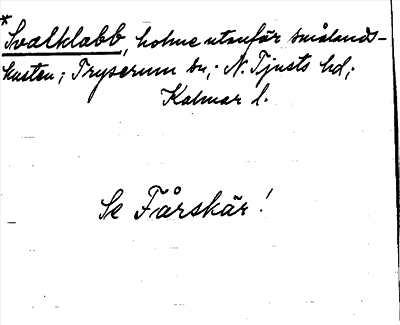 *
Svalklabb, holme utanför smålands-
kusten; Tryserum sn; N. Tjusts hd;
Kalmar l.
Se Fårskär!